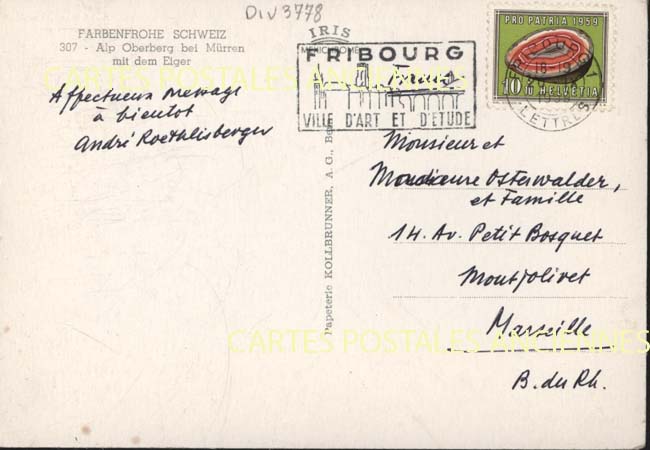 DIV3778
FARBENFROHE SCHWEIZ
307 - Alp Oberberg bei Mürren
mit dem Eiger
Affectueux message
à bientot
André Roethlisberger
IRIS
FRIBOURG
VILLE D'ART ET D'ETUDE
PRO PATRIA 1959
10
10 HELVETIA
LETTRES
Papeterie KOLLBRUNNER, A. G.,
Monsieur et
Madame Osterwalder,
et Famille
14. Av. Petit Bosquet
Montjolivet
Marseille
B. du Rh.
CARTES POSTALES ANCIENNES
CARTES POSTALES ANCIENNES